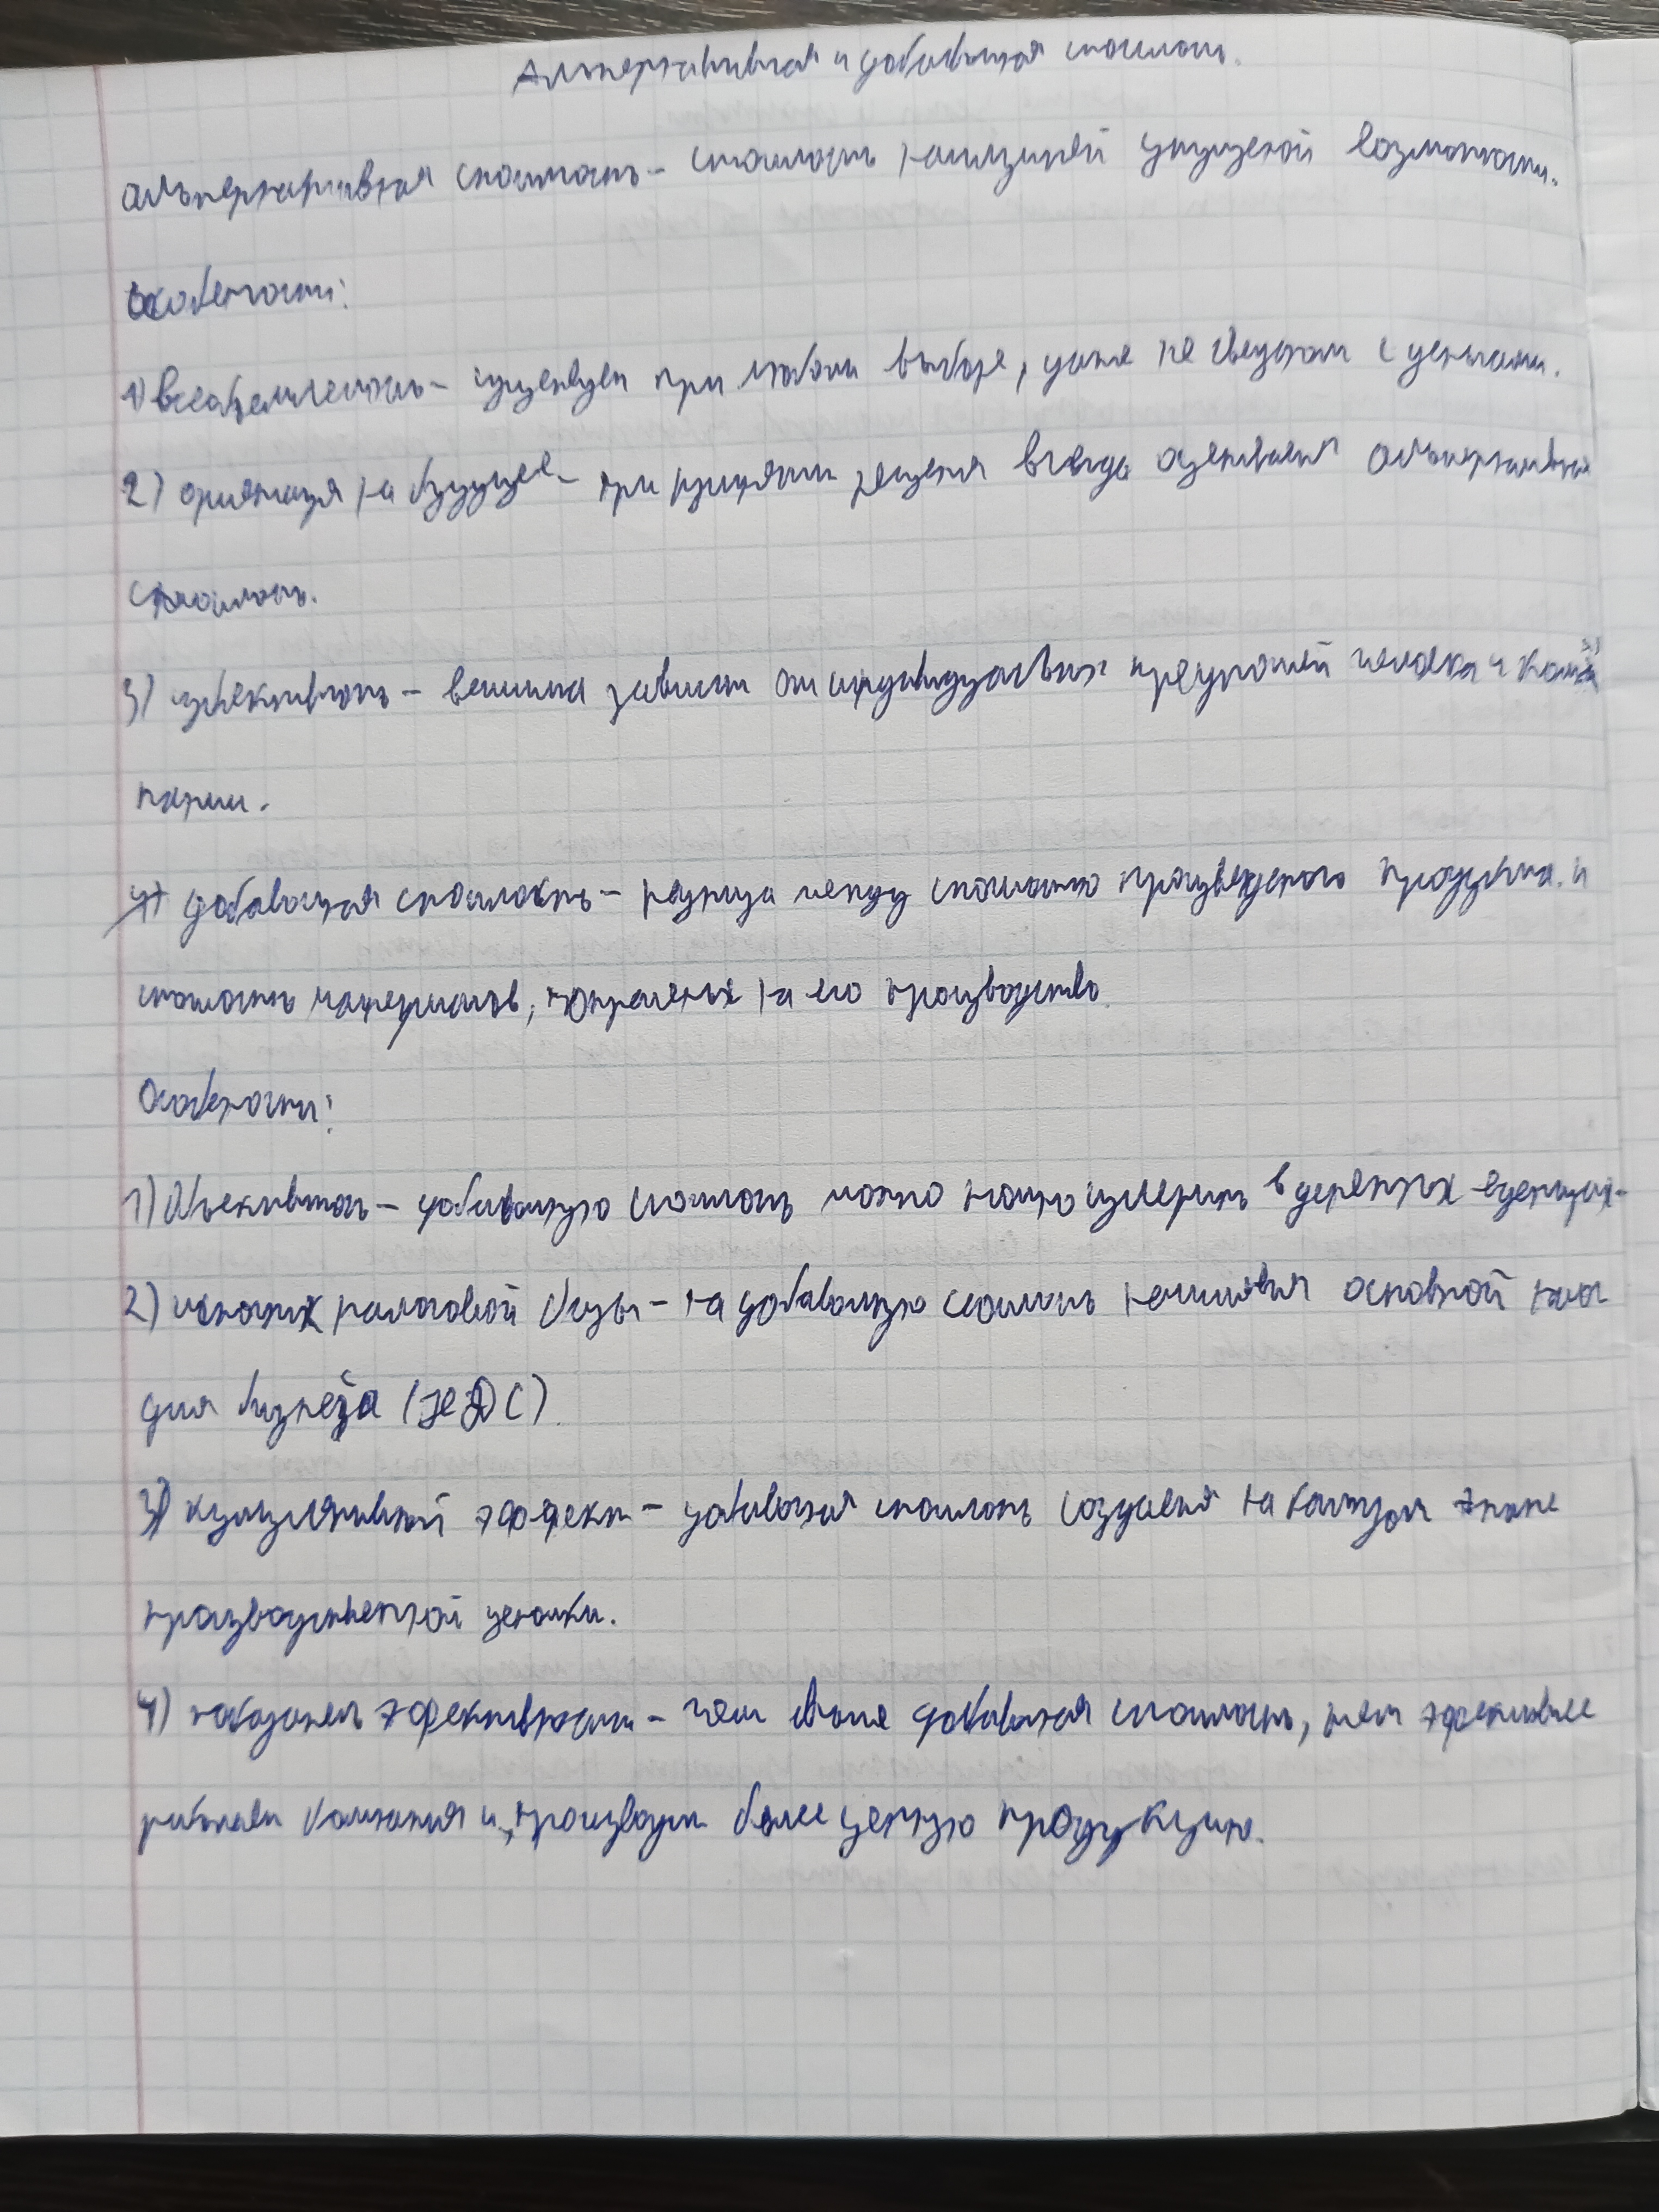 Альтернативная и добавочная стоимость.
альтернативная стоимость – стоимость наилучшей упущеной возможности.
Особености:
1) всеобъемлемость – существует при любом выборе, даже не связаном с деньгами.
2) ориентация на будущее – при принятии решения всегда оценивается альтернативная
стоимость.
3) субъективность – величина зависит от индивидуальных предпочтений человека и
пании.
добавочная стоимость – разница между стоимостью произведеного продукта и
стоимость материалов, потраченых на его производство.
Особености:
1) Объективность – добавочную стоимость можно точно измерить в денежных единицах.
2) источник налоговой базы – на добавочную стоимость начисляется основной налог
для бизнеса (НДС).
3) кумулятивный эффект – добавочная стоимость создается на каждом этапе
производственной цепочки.
4) показатель эфективности – чем выше добавочная стоимость, тем эфективнее
работает компания и производит более ценную продукцию.